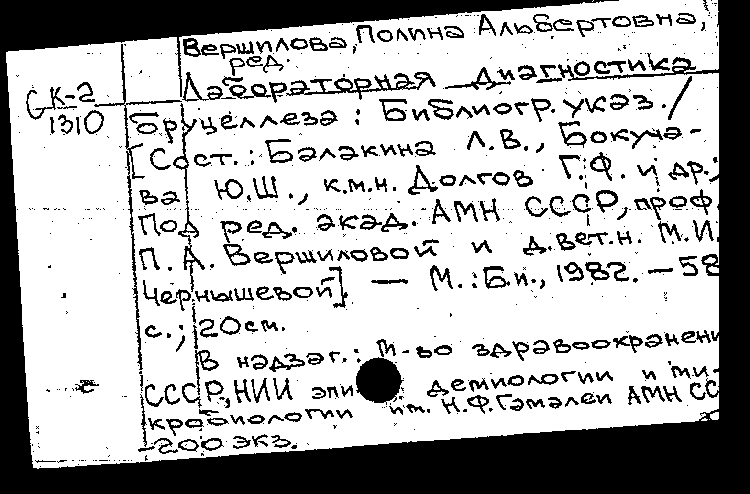 Вершилова, Полина Альбертовна,
ред.
Лабораторная диагностика
СК-2
1310
бруцеллеза : Библиогр. указ. /
[Сост.: Балакина Л.В., Бокуча-
ва Ю.Ш., к.м.н. Долгов Г.Ф. и др.;
Под ред. акад. АМН СССР, проф.
П. А. Вершиловой и д.вет.н. М.И.
Чернышевой]. — М. : Б.и., 1982. — 58
с. ; 20 см.
В надзаг.: М-во здравоохранени
СССР, НИИ эпи- демиологии и ми-
кробиологии им. Н.Ф. Гамалеи АМН СС
- 200 экз.